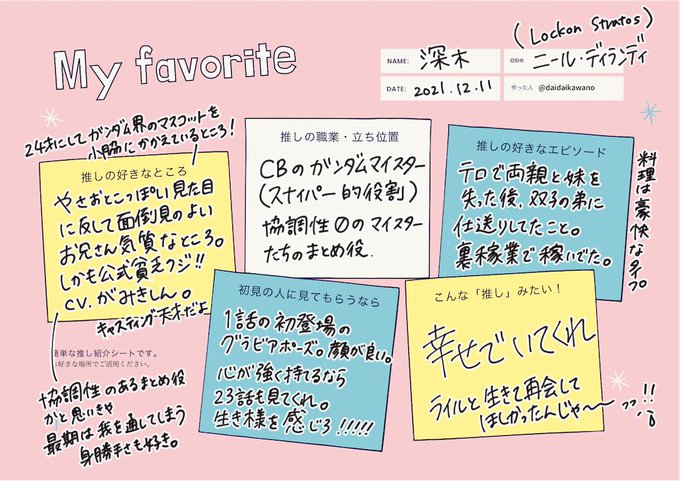 My favorite
NAME: 深木
(Lockon Stratos)
OSHI: ニール・ディランディ
DATE: 2021.12.11
作った人 @daidaikawano
24才にしてガンダム界のマスコットを
小脇にかかえているところ!
推しの好きなところ
やさおとこっぽい見た目
に反して面倒見のよい
お兄さん気質なところ。
しかも公式貧乏クジ!!
CV.がみきしん。
キャスティング天才だよ
簡単な推し紹介シートです。
お好きな場所でご活用ください。
協調性のあるまとめ役
かと思いきや
最期は我を通してしまう
身勝手さも好き。
推しの職業・立ち位置
CBのガンダムマイスター
(スナイパー的役割)
協調性0のマイスター
たちのまとめ役.
推しの好きなエピソード
テロで両親と妹を
失った後、双子の弟に
仕送りしてたこと。
裏稼業で稼いでた。
料理は豪快なタイプ。
初見の人に見てもらうなら
1話の初登場の
グラビアポーズ。顔が良い。
心が強く持てるなら
23話も見てくれ。
生き様を感じろ!!!!!
こんな「推し」みたい!
幸せでいてくれ
ライルと生きて再会して
ほしかったんじゃ〜!!